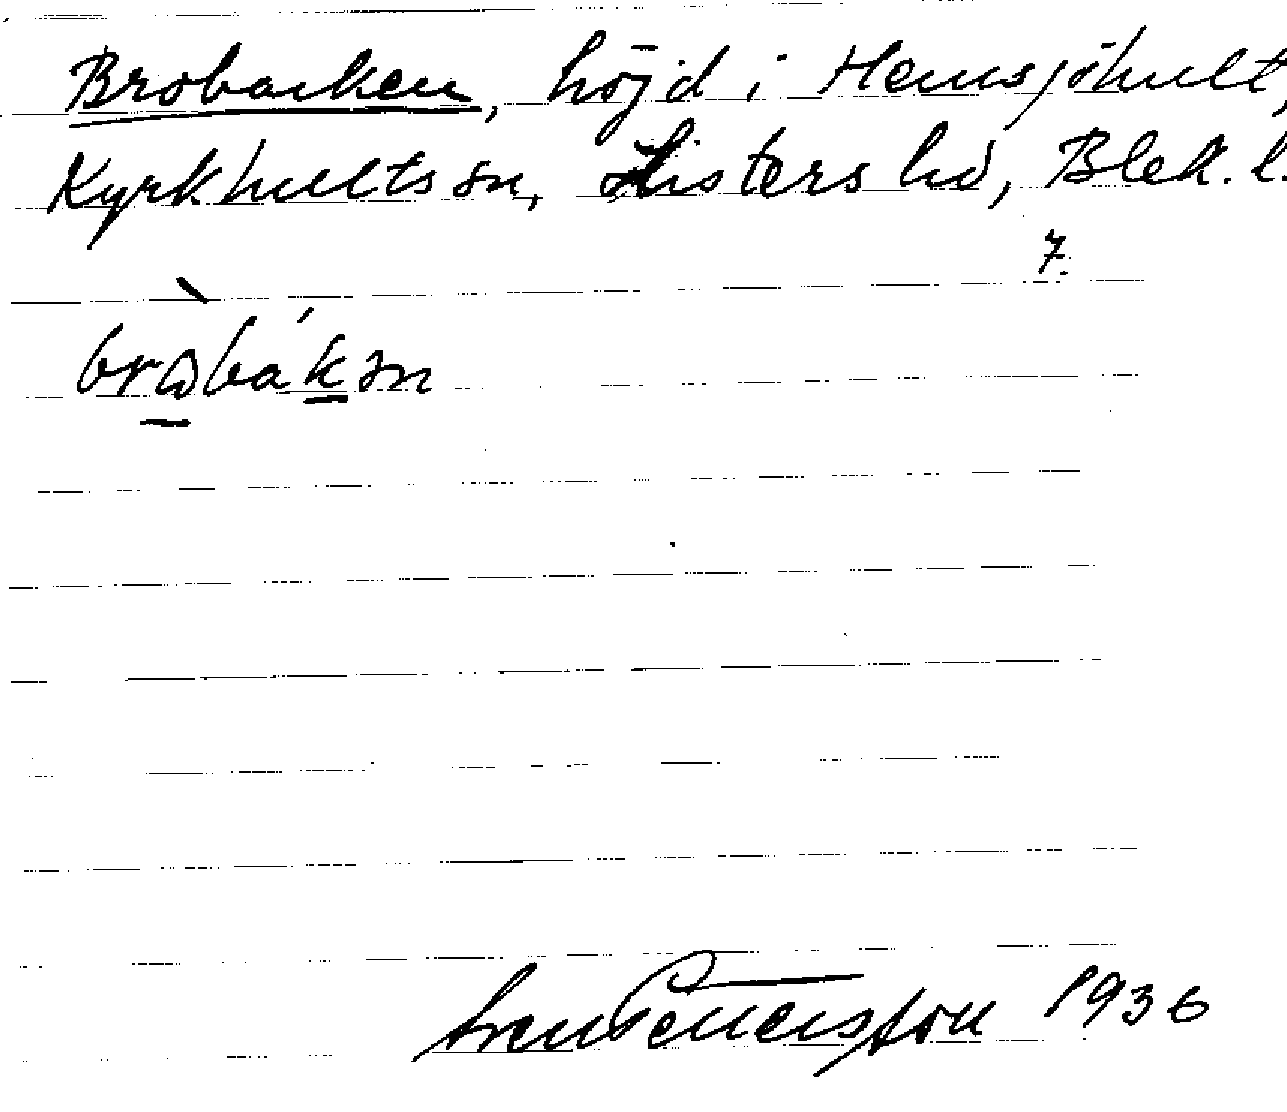 Brobacken, höjd i Hemsjöhult,
Kyrkhults sn, Listers hd, Blek. l.
7.
brɷbákən
Sven Pettersson 1936